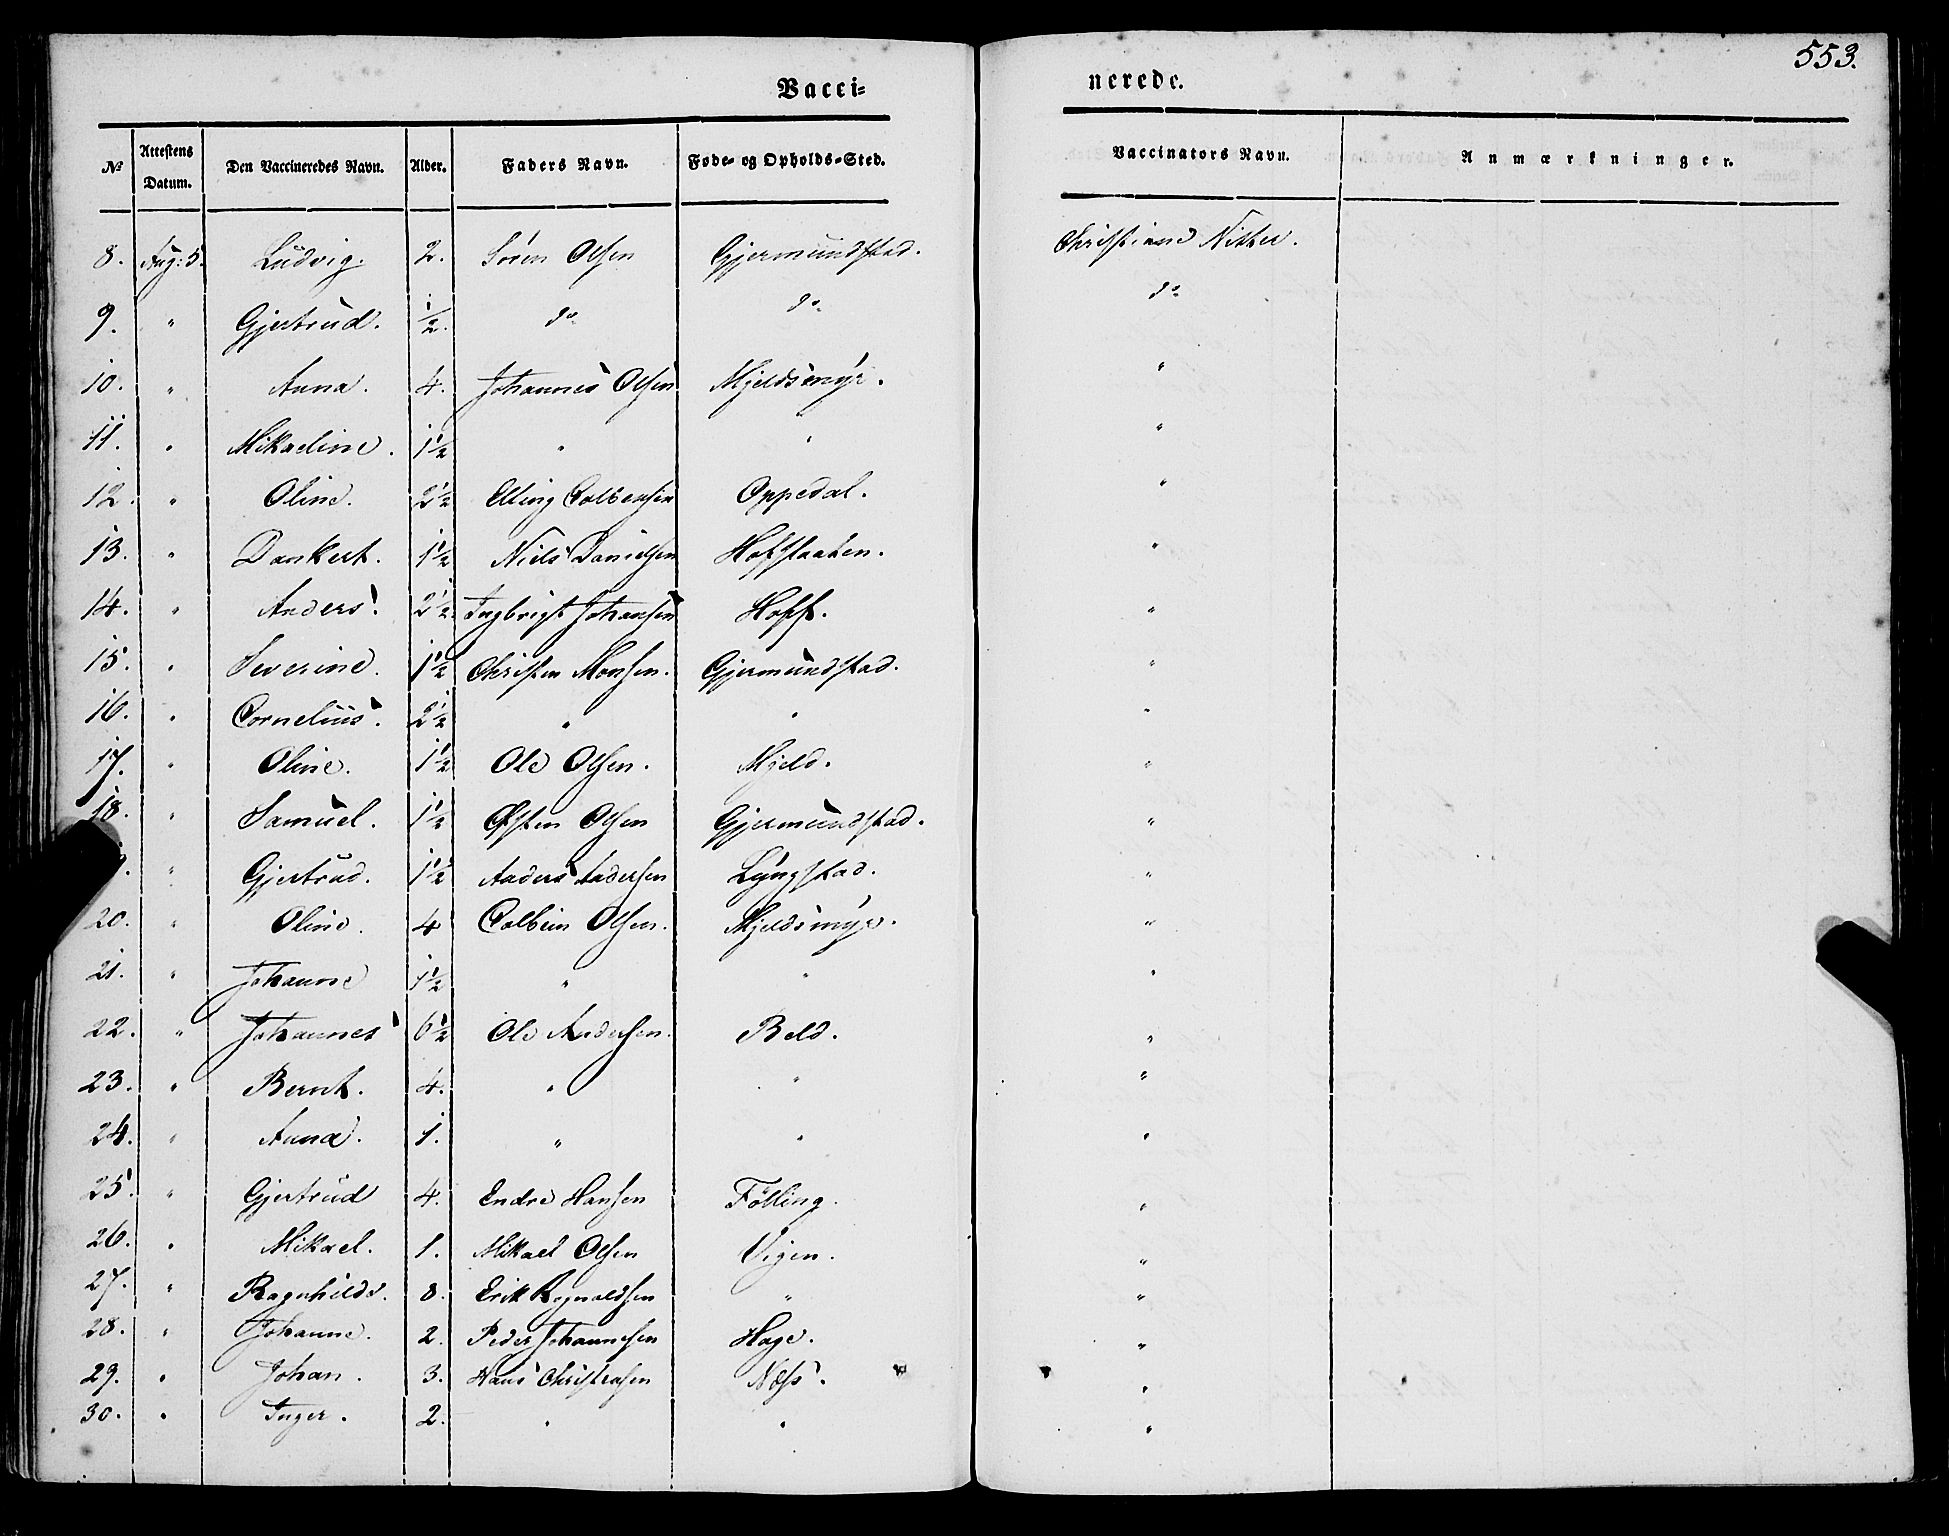 553.
Vacci=
nerede.
№ Attestens Datum. Den Vaccineredes Navn. Alder. Faders Navn. Føde- og Opholds-Sted. Vaccinators Navn. Anmærkninger.
8. Aug: 5. Ludvig. 2. Søren Olsen Gjermundstad. Christiane
9. " Gjertrud. ½. do do do
10. " Anna. 4. Johannes Olsen Mjeldsmyr. "
11. " Mikaeline. 1½ " " "
12. " Oline. 2½ Elling Colbensen Oppedal. "
13. " Dankert. 1½ Niels Danielsen Hofstaaten. "
14. " Anders. 2½. Ingbrigt Johansen Hoff. "
15. " Severine. 1½ Christen Monsen. Gjermundstad. "
16. " Cornelius. 2½ " " "
17. " Oline. 1½ Ole Olsen. Mjeld. "
18. " Samuel. 1½ Østen Olsen Gjermundstad. "
" Gjertrud. 1½ Anders Andersen Lyngstad. "
20. " Oline. 4 Colbein Olsen. Mjeldsmyr. "
21. " Johanne 1½ " " "
22. " Johannes 6½ Ole Andersen. Beld. "
23. " Bernt. 4. " " "
24. " Anna. 1. " " "
25. " Gjertrud 4. Endre Hansen Fölling. "
26. " Mikael. 1. Mikael Olsen Vigen. "
27. " Ragnhilde. 8. Erik Rognaldsen " "
28. " Johanne. 2. Peder Johannesen Hage. "
29. " Johan. 3. Hans Næss. "
30. " Inger. 2. " " "